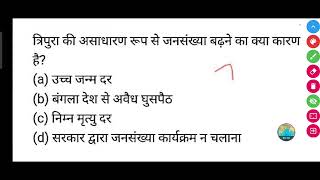 त्रिपुरा की असाधारण रूप से जनसंख्या बढ़ने का क्या कारण
है?
(a) उच्च जन्म दर
(b) बंगला देश से अवैध घुसपैठ
(c) निम्न मृत्यु दर
(d) सरकार द्वारा जनसंख्या कार्यक्रम न चलाना